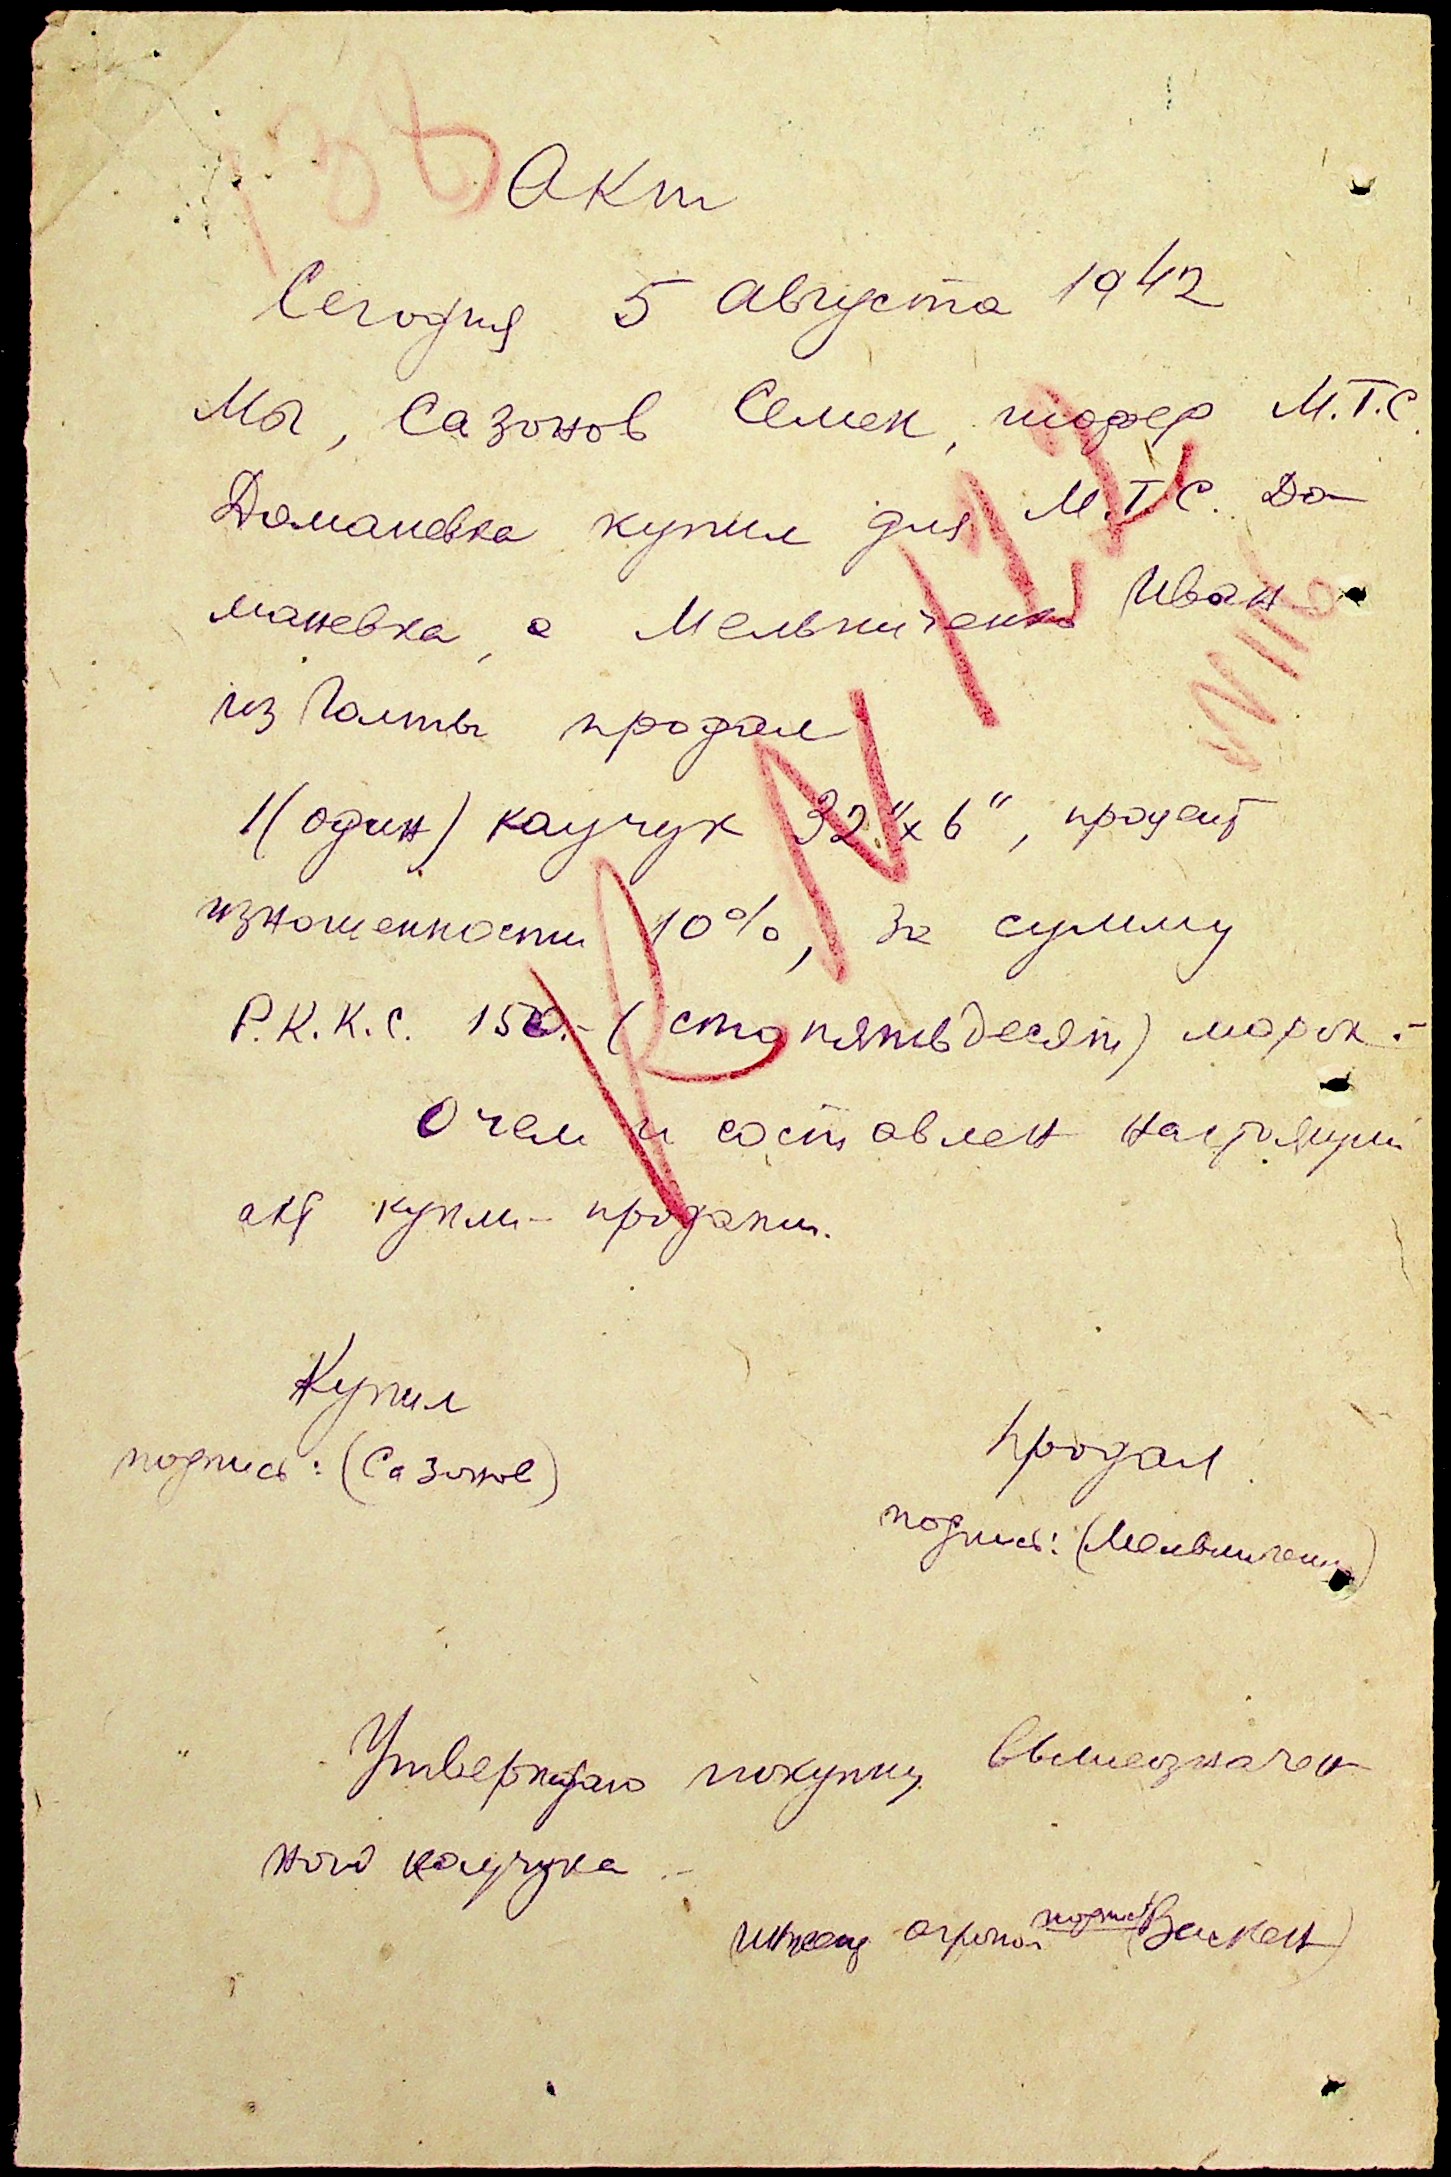 138
Акт
Сегодня 5 августа 1942
Мы, Сазонов Семен, шофер М.Т.С.
Доманевка купил для М.Т.С. До-
маневка, а Мельниченко Иван
из Голты продал
1 (один) каучук 32"x 6", процент
изношенности 10%, за сумму
Р.К.К.С. 150.- (сто пятьдесят) марок.-
О чем и составлен настоящий
акт купли-продажи.
N 116
Купил
подпись: (Сазонов)
Продал
подпись: (Мельниченко)
Утверждаю покупку вышеозначен-
ного каучука.-
подпись